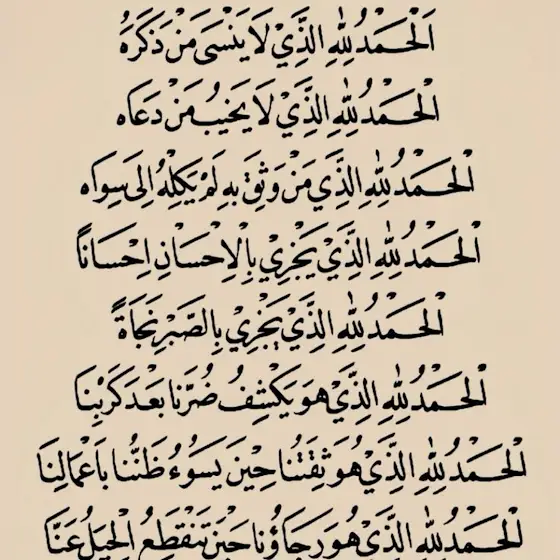 اَلْحَمْدُ لِلّٰهِ الَّذِيْ لَا يَنْسَى مَنْ ذَكَرَهُ
اَلْحَمْدُ لِلّٰهِ الَّذِيْ لَا يَخِيْبُ مَنْ دَعَاه
اَلْحَمْدُ لِلّٰهِ الَّذِيْ مَنْ وَثِقَ بِهِ لَمْ يَكِلْهُ اِلَى سِوَاه
اَلْحَمْدُ لِلّٰهِ الَّذِيْ يَجْزِيْ بِالْاِحْسَانِ اِحْسَانًا
اَلْحَمْدُ لِلّٰهِ الَّذِيْ يَجْزِيْ بِالصَّبْرِ نَجَاةً
اَلْحَمْدُ لِلّٰهِ الَّذِيْ هُوَ يَكْشِفُ ضُرَّنَا بَعْدَ كَرْبِنَا
اَلْحَمْدُ لِلّٰهِ الَّذِيْ هُوَ ثِقَتُنَا حِيْنَ يَسُوْءُ ظَنُّنَا بِاَعْمَالِنَا
اَلْحَمْدُ لِلّٰهِ الَّذِيْ هُوَ رَجَاؤُنَا حِيْنَ تَنْقَطِعُ الْحِيَلُ عَنَّا